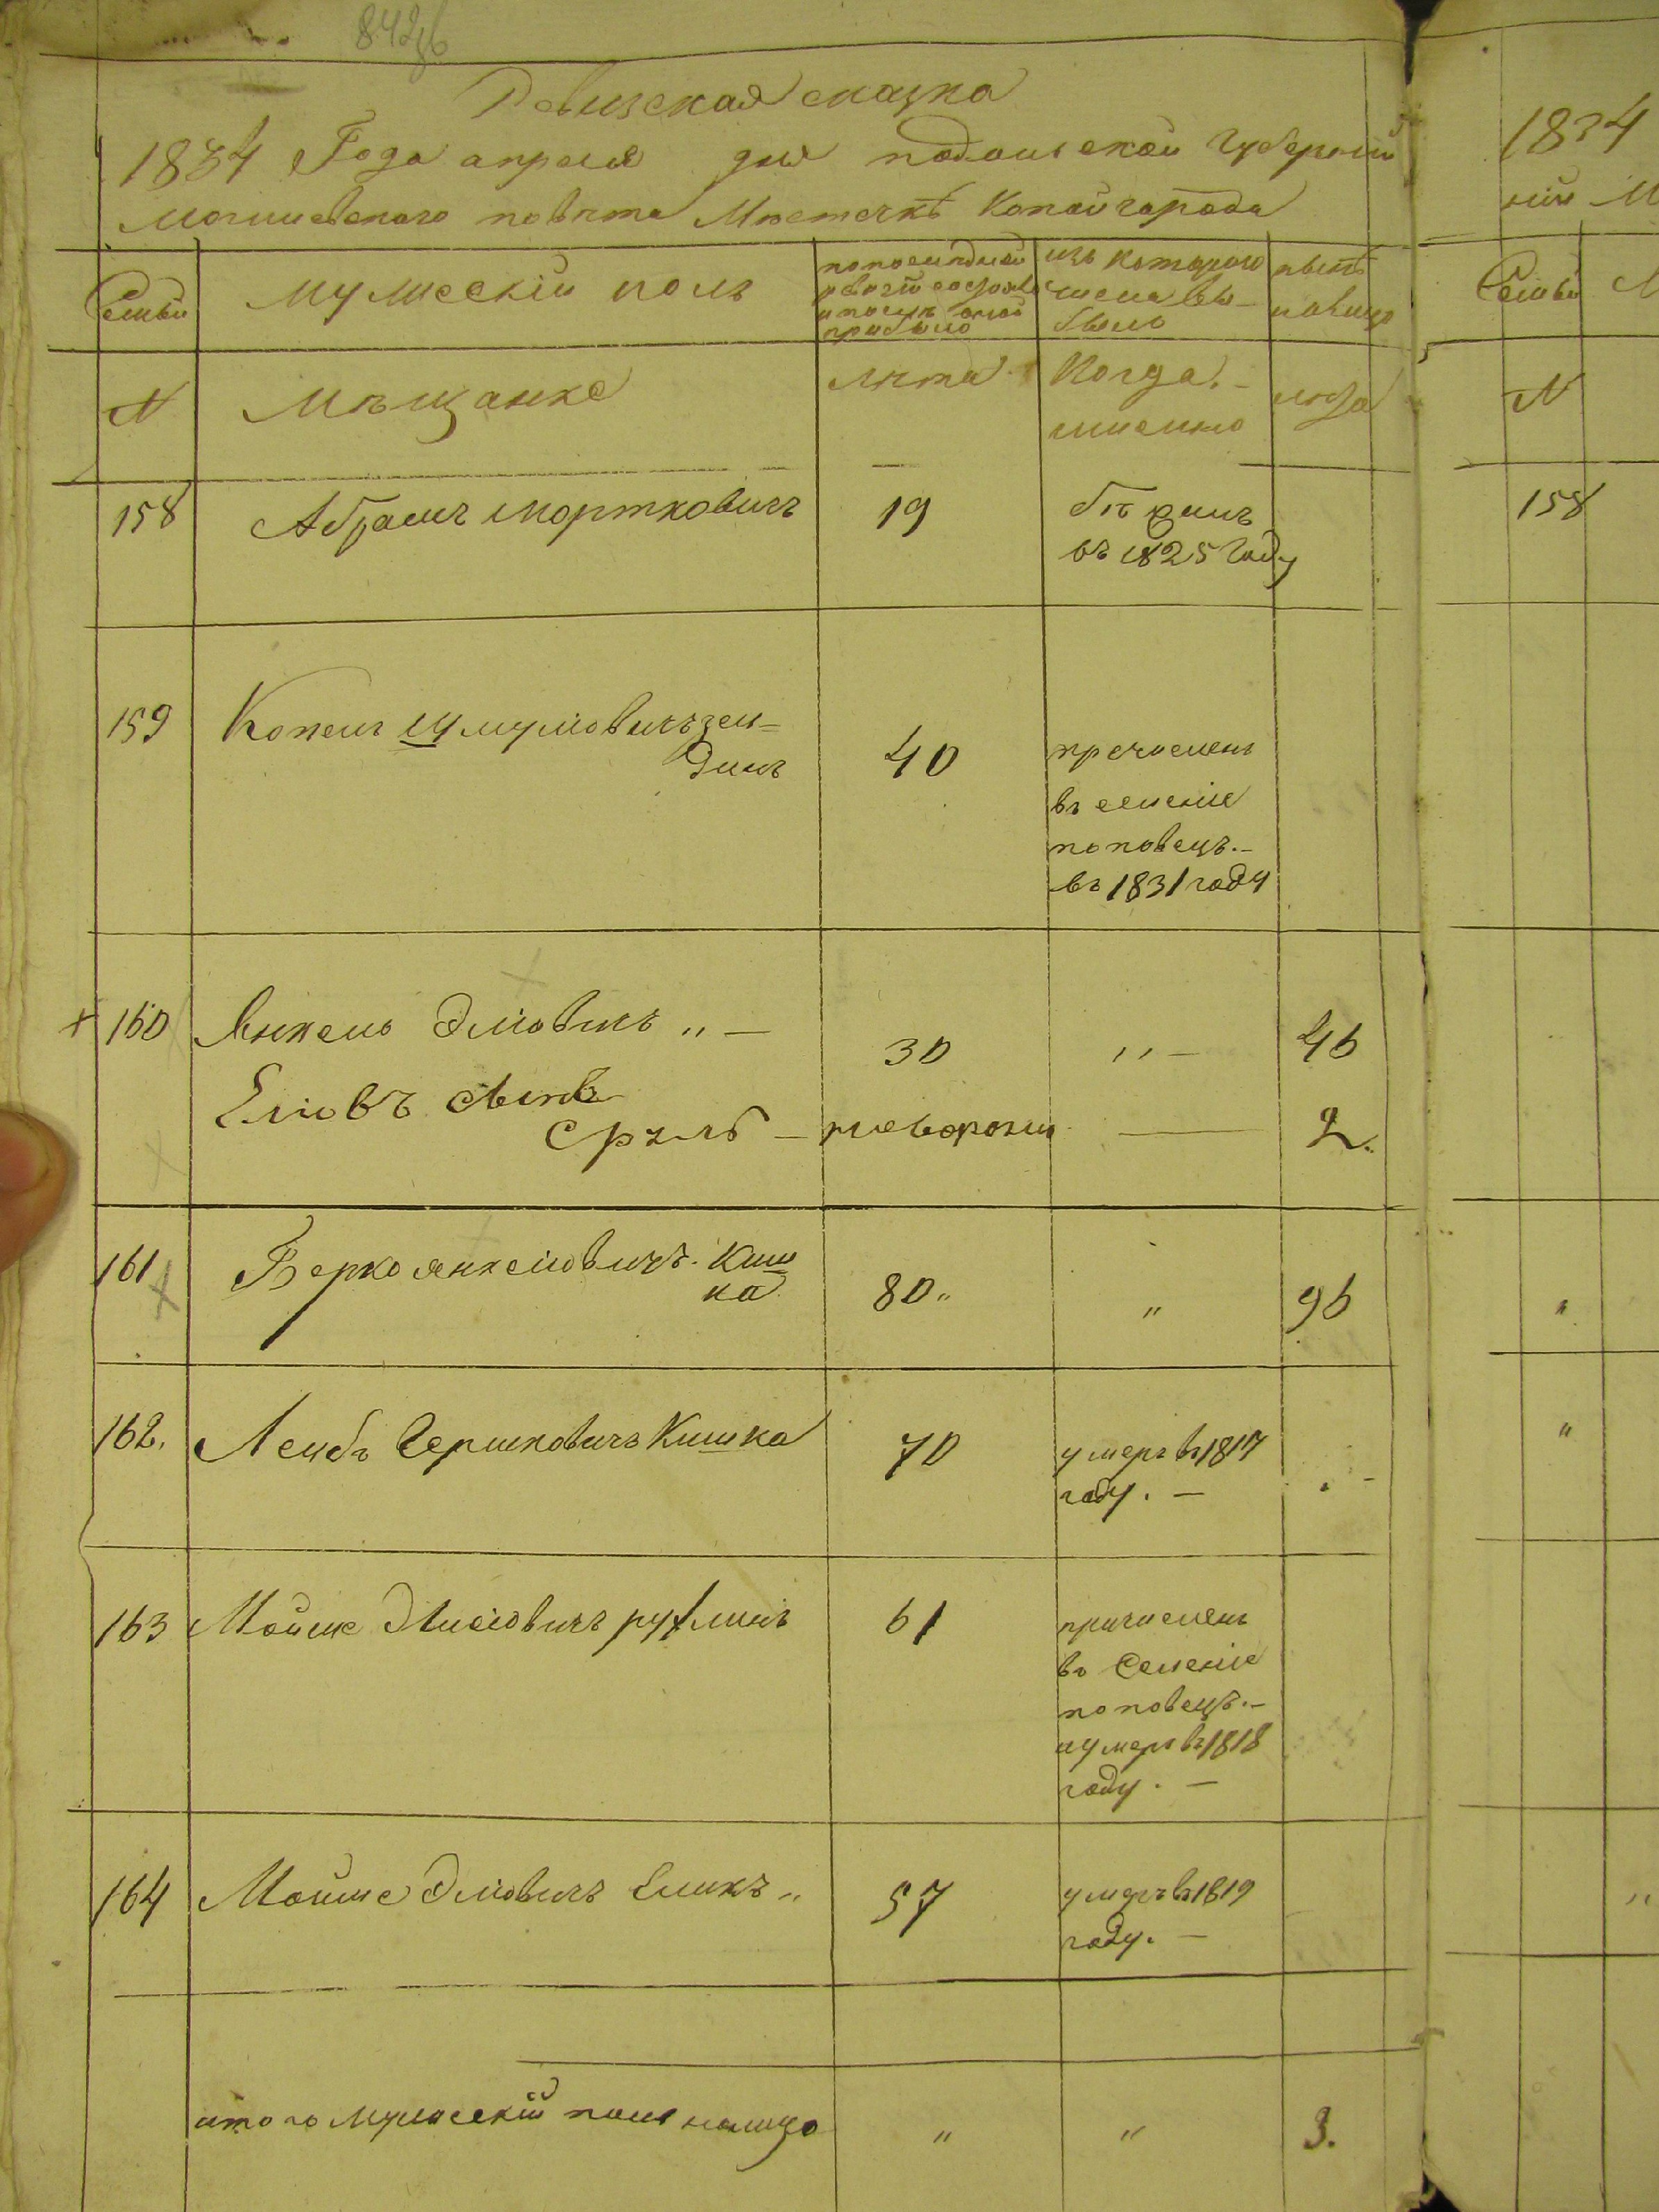 842
Ревизская сказка
1834 Года апреля дня подольской губернии
могилевского повѣта Мѣстечкѣ Копайгорода
Семьи
мужескій полъ
по последней
ревизіи состояло
и послѣ оной
прибыло
изъ которого
числа вы-
было
нынѣ
налицо
N
Мѣщанже
лѣта
Когда.-
именно
лѣта
158 Абрамъ Мортковичъ 19 бѣжалъ
въ 1825 Году
159 Копель Шмулювичъ зен-
динъ 40 пречисленъ
въ селеніе
поповецъ.-
въ 1831 году
160 Янкель Элювичъ „ — 30 „ — 46
Елювъ сынъ
Сруль — новорожн — 2.
161 Берко янкелювичъ. Киш
ка 80„ „ 96
162. Лейбъ Гершковичъ Кишка 70 умеръ въ 1817
году. —
163 Мойше Элисювичъ 61 причисленъ
въ Селеніе
поповецъ.-
иумеръ въ 1818
году. —
164 Мойше Элювичъ „ 57 умеръ въ 1819
году. —
итого мужескій полъ налицо „ „ 3.
1834
ній М
Семьи
М
N
158
"
"
"